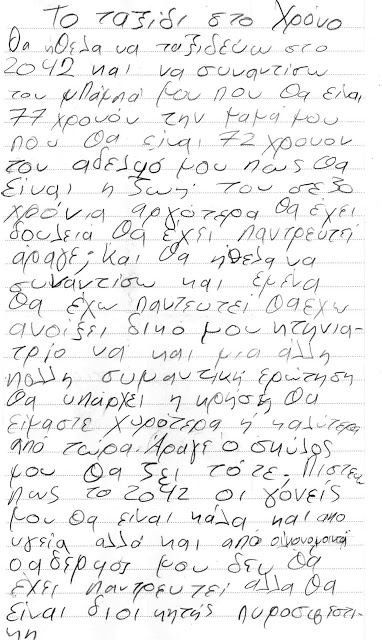 Το ταξίδι στο Χρόνο
Θα ηθελα να ταξιδεύω στο
2042 και να συναντίσω
τον μπάμπά μου που θα είναι
77 χρονόν την μαμά μου
που θα είναι 72 χρονον
τον αδελφό μου πως θα
είναι η ζωή του σε 30
χρόνια αργότερα θα έχει
δουλεια θα έχει παντρευτεί
άραγε; Και θα ήθελα να
συναντίσω και εμένα
θα έχω παντευτεί θα έχω
ανοίξει δικό μου κτηνια-
τρίο να και μια άλλη
πολλη συμαντική ερώτηση
θα υπάρχει η κρησή θα
είμαστε χυρότερα ή καλύτερα
από τώρα. Άραγε ο σκύλος
μου θα ζει τότε; Πιστεύω
πως το 2042 οι γόνείς
μου θα είναι κάλα και απο
υγεία αλλά και από οικονομικά
ο αδερφός μου δεν θα
έχει παντρευτεί αλλα θα
είναι διοικητής πυροσβεστι-
κη